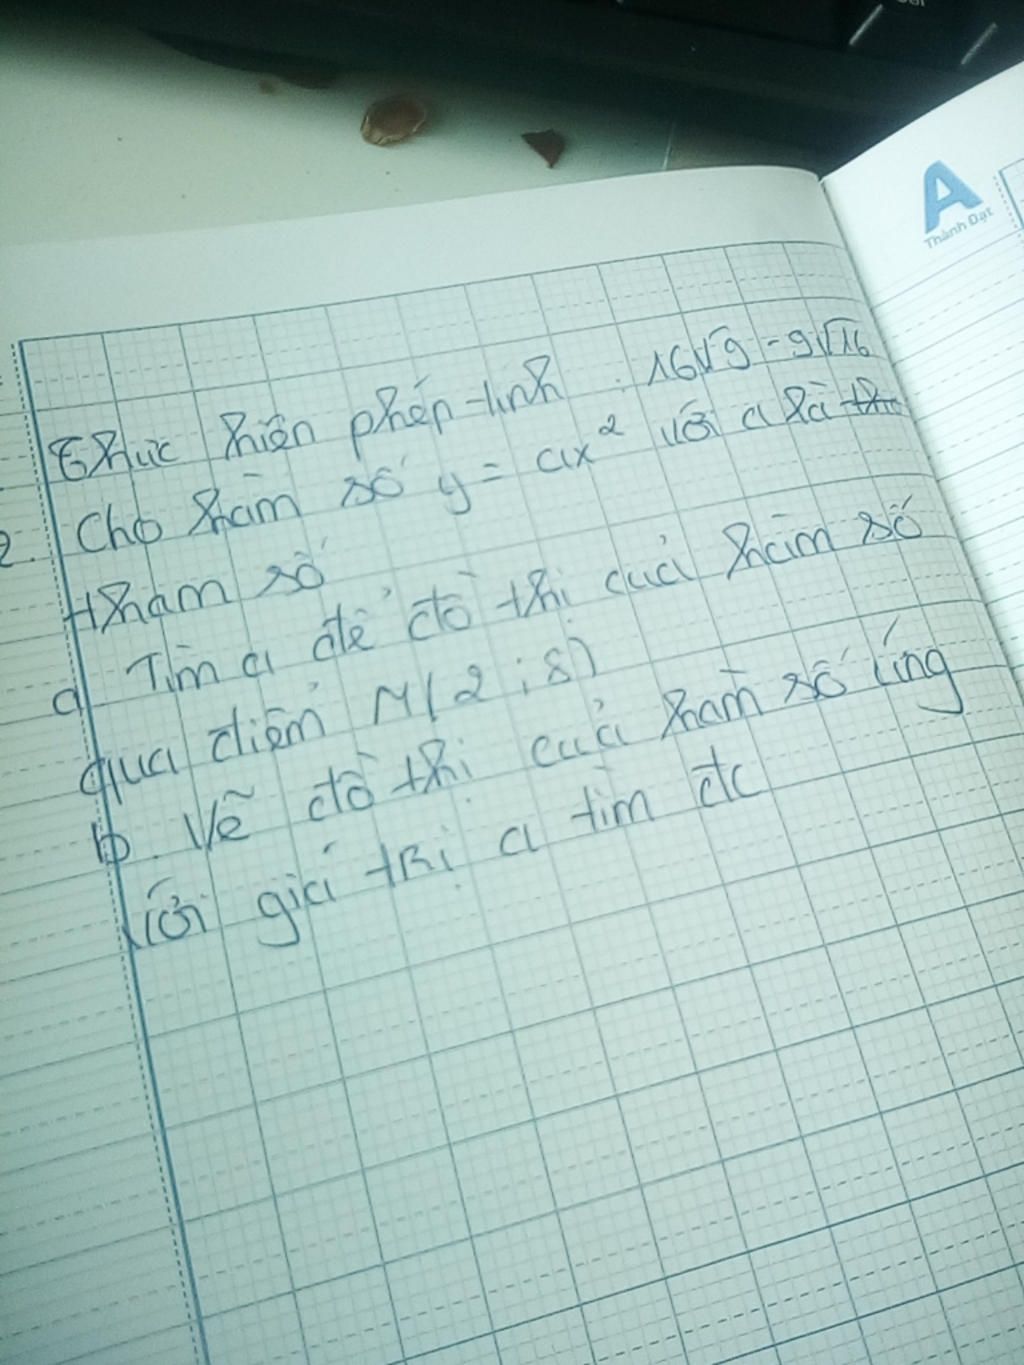 A
Thành Đạt
Thực hiện phép tính : 16√9 - 9√16
2. Cho hàm số y = ax² với a là
tham số
a Tìm a để đồ thị của hàm số
qua điểm M(2 ; 8)
b. Vẽ đồ thị của hàm số ứng
với giá trị a tìm đc